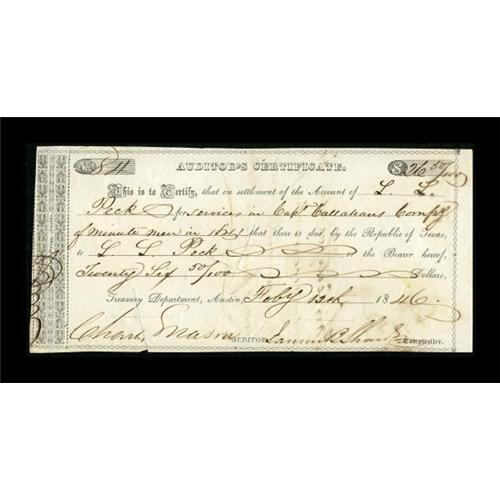 No 811 $26 50/100
AUDITOR'S CERTIFICATE.
This is to Certify, that on settlement of the Account of L. L.
Peck for services in Capt Callahans Compy
of minute men in 1841 that there is due, by the Republic of Texas,
to L L Peck or the Bearer hereof,
Twenty Six 50/100 Dollars,
Treasury Department, Austin, Feby 12th 1846.
Charles Mason AUDITOR. Comptroller.